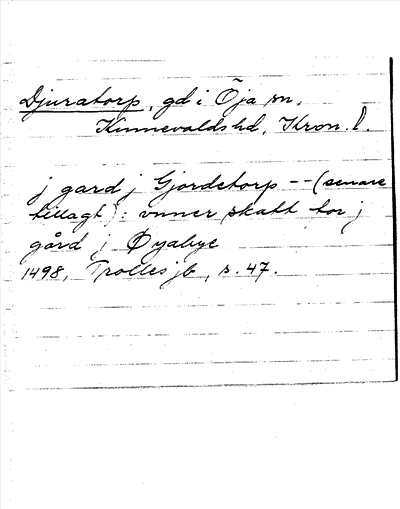 Djuratorp, gd i Öja sn.
Kinnevalds hd, Kron. l.
j gard j Gjordetorp -- (senare
tillagt): vnner skatt tor j
gård j Øyabye
1498, Trolles jb, s. 47.